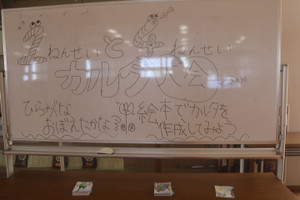 1ねんせいと4ねんせい
カルタ大会
ひらがな
おぼえたかな？
絵本でカルタを
作成してみよう